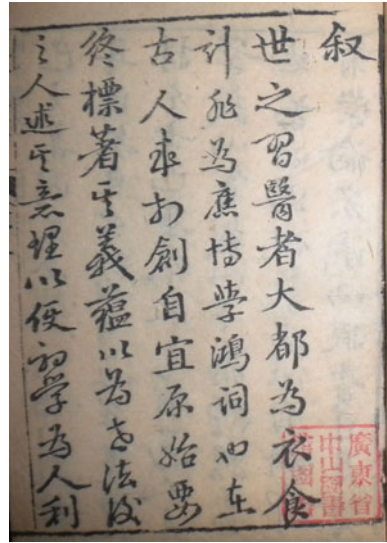 叙
世之習醫者大都為衣食
計非為應博學鴻詞也在
古人事於創自宜原始要
終標著其義蘊以為世法後
之人述其意理以便初學為人利
廣東省
中山圖書